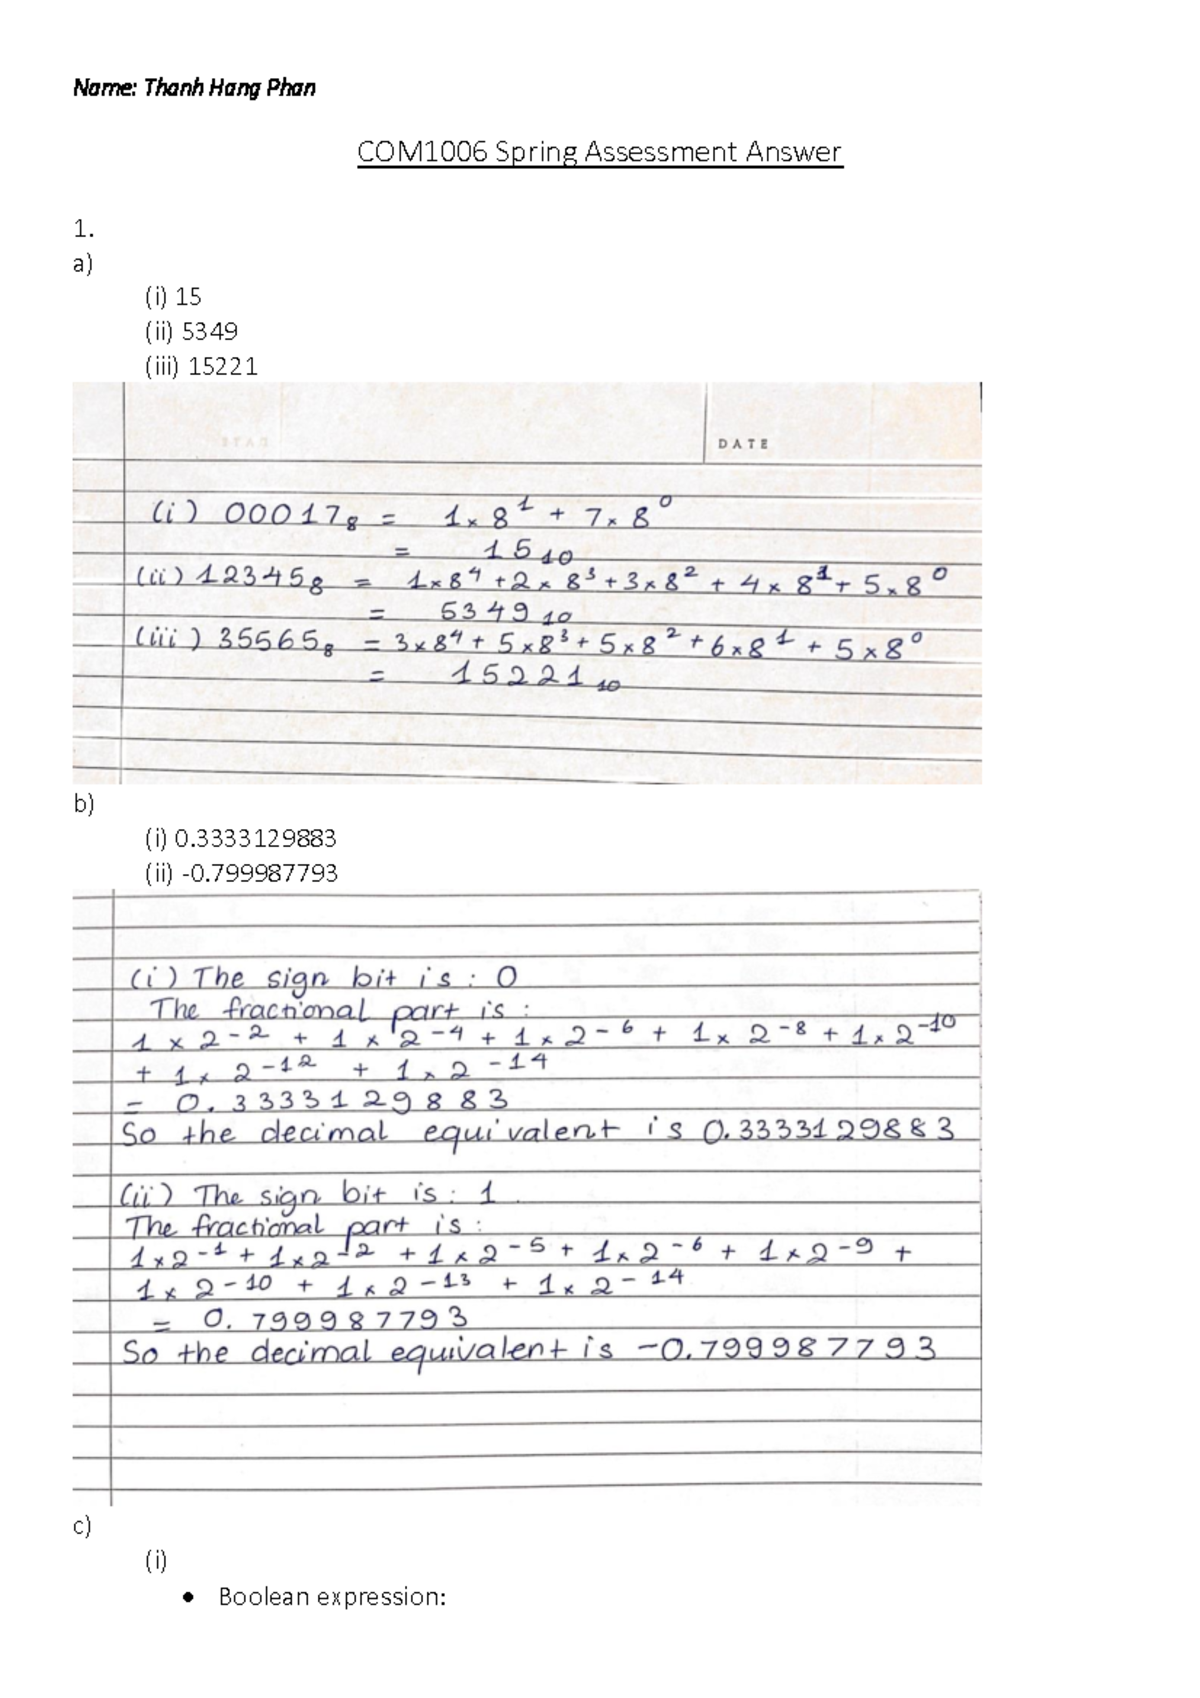 Name: Thanh Hang Phan
COM1006 Spring Assessment Answer
1.
a)
(i) 15
(ii) 5349
(iii) 15221
DATE
(i) 00017₈ = 1×8¹ + 7×8⁰
= 15₁₀
(ii) 12345₈ = 1×8⁴ + 2×8³ + 3×8² + 4×8¹ + 5×8⁰
= 5349₁₀
(iii) 35565₈ = 3×8⁴ + 5×8³ + 5×8² + 6×8¹ + 5×8⁰
= 15221₁₀
b)
(i) 0.3333129883
(ii) -0.799987793
(i) The sign bit is : 0
The fractional part is :
1 × 2⁻² + 1 × 2⁻⁴ + 1 × 2⁻⁶ + 1 × 2⁻⁸ + 1 × 2⁻¹⁰
+ 1 × 2⁻¹² + 1 × 2⁻¹⁴
= 0.3333129883
So the decimal equivalent is 0.3333129883
(ii) The sign bit is : 1
The fractional part is :
1×2⁻¹ + 1×2⁻² + 1×2⁻⁵ + 1×2⁻⁶ + 1×2⁻⁹ +
1×2⁻¹⁰ + 1×2⁻¹³ + 1×2⁻¹⁴
= 0.799987793
So the decimal equivalent is -0.799987793
c)
(i)
• Boolean expression: